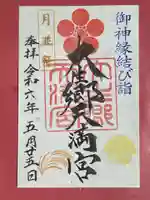 御神縁結び詣
大生郷天満宮
月並祭
奉拝 令和六年 五月廿五日